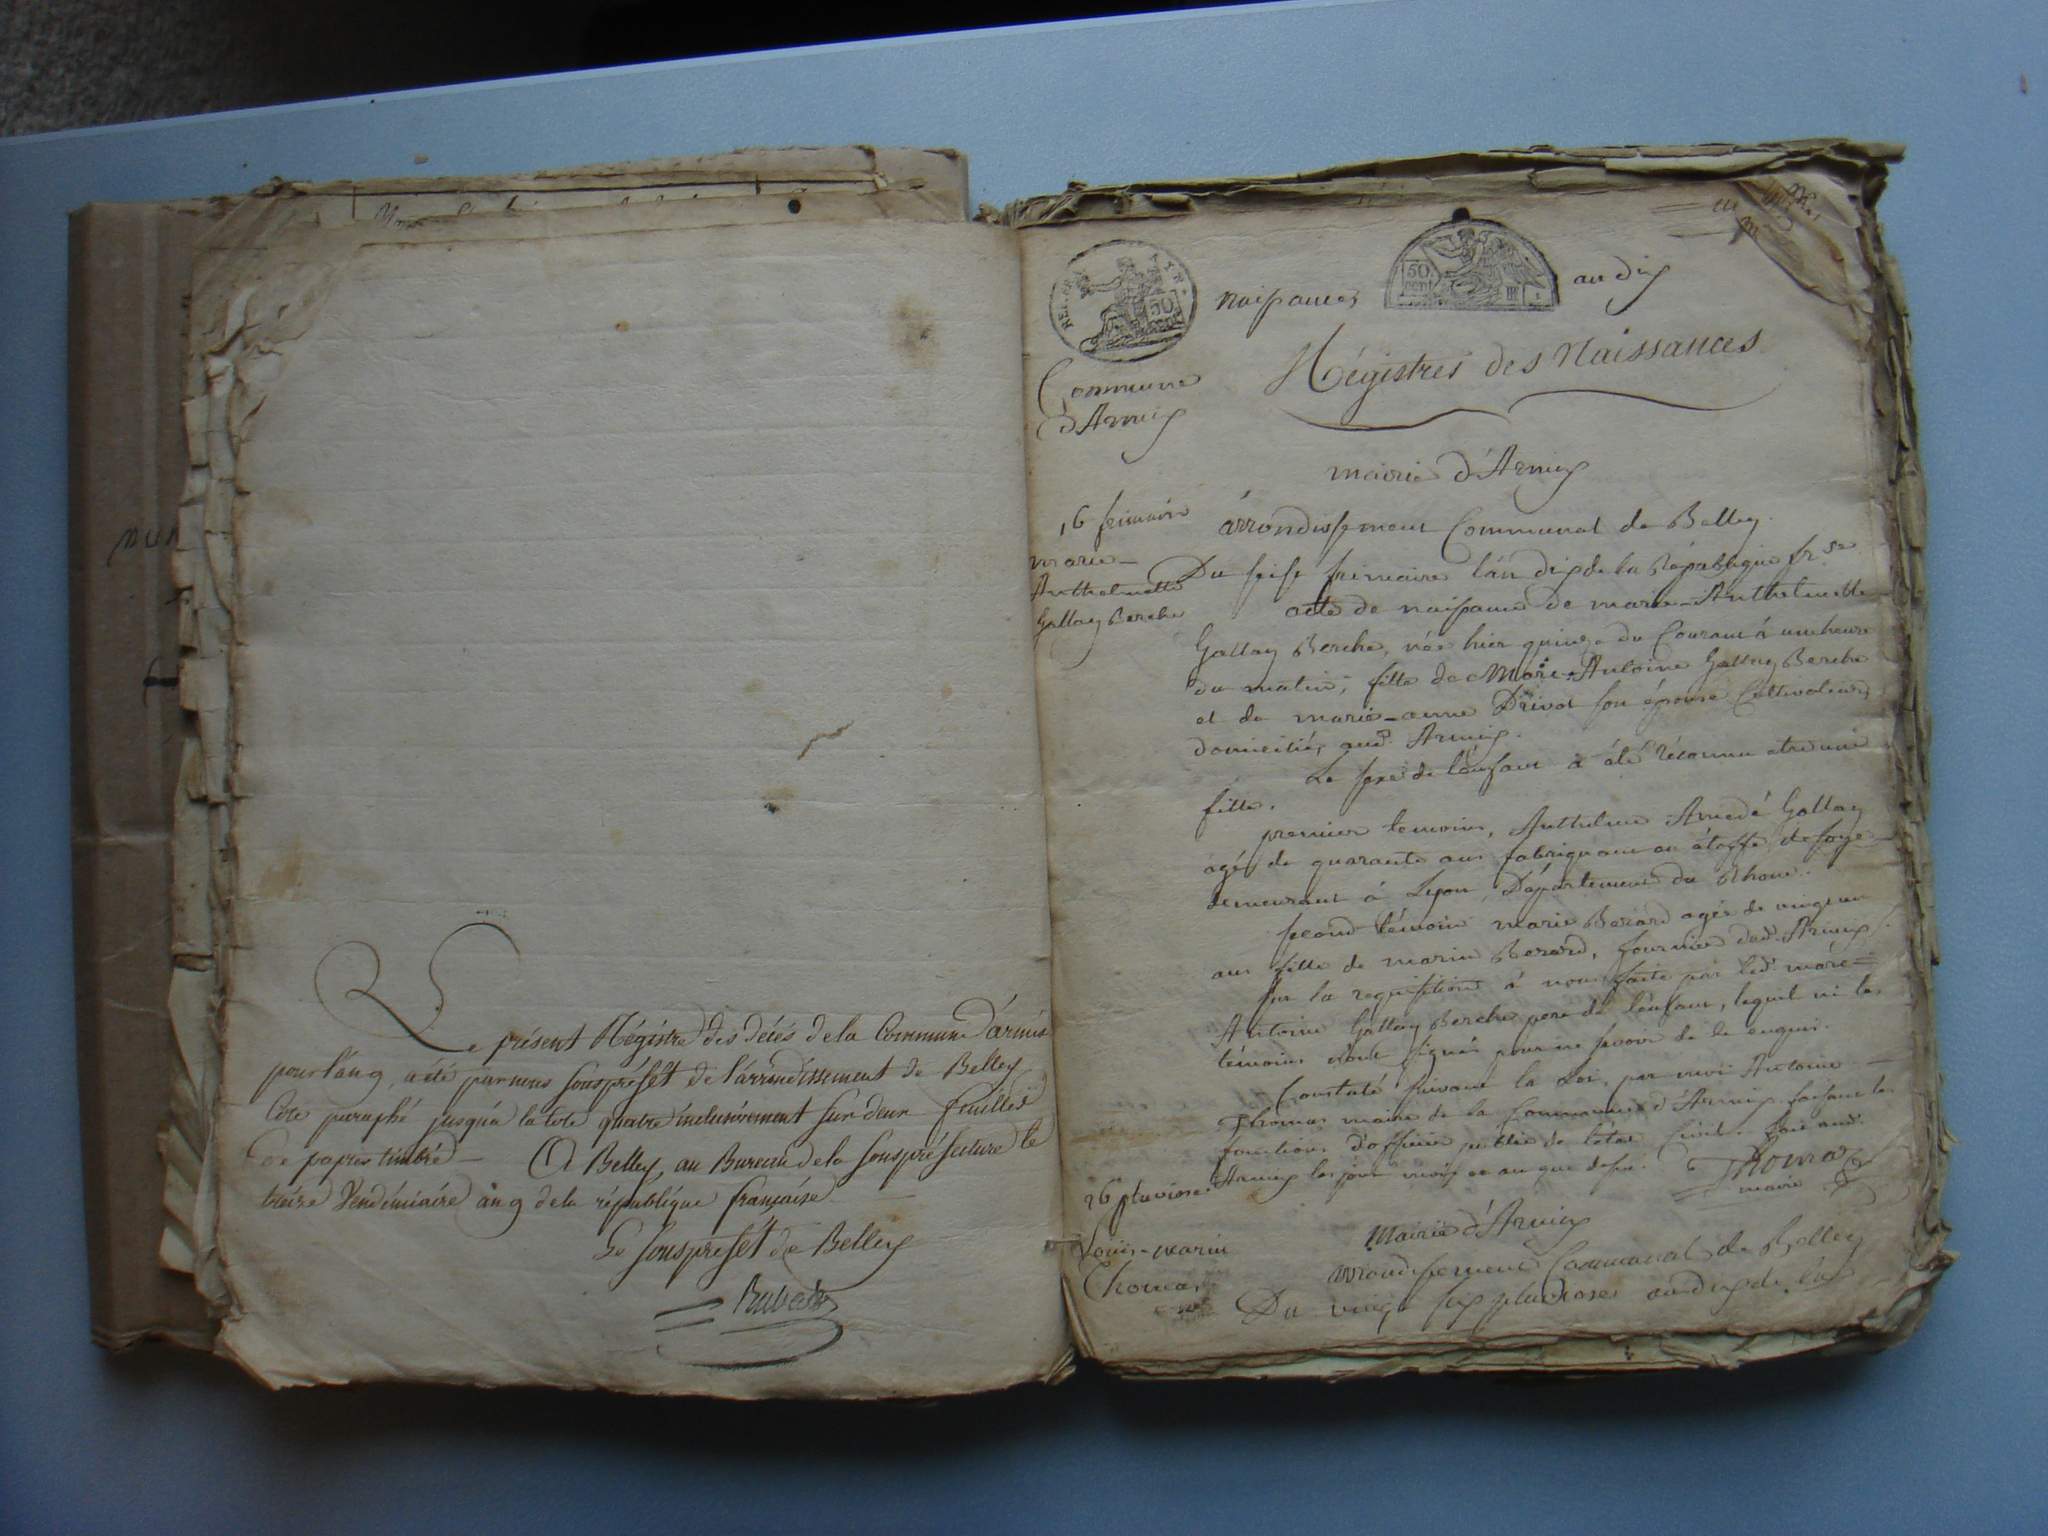 Le présent Régistre des décés de la Commune D'armix
pour l'an 9, a été par nous Souspréfét de l'arrondissement de Belley
Coté paraphé jusqu'a la Cote quatre inclusivement sur deux feuilles
de papier timbré — A Belley, au Bureau de la Souspréfecture le
treize Vendémiaire an 9 de la république française
Le Souspréfét de Belley
naissances
50
cent
an dix
Régistres des Naissances
Commune
d'Armix
mairie d'Armix
arrondissement Communal de Belley.
16 frimaire
marie-
Anthelmette
Gallay Berche
Du seise frimaire l'an dix de la République fr.se
acte de naissance de marie-Anthelmette
Gallay Berche, née hier quinze du Courant à une heure
du matin, fille de Marc-Antoine Gallay Berche
et de marie-anne Privat son épouse Cultivateurs
domiciliés aud. Armix.
Le sexe de l'enfant a été réconnu etre une
fille.
premier temoin, Anthelme Amedé Gallay
agé de quarante ans fabriquant en étoffe de soye
demeurant à Lyon, Département du Rhone.
second témoin marie Berard agée de vingt un
ans fille de marin Berard, fournier dud. Armix
sur la requisition à nous faite par led. marc-
Antoine Gallay Berche pere de l'enfant, lequel ni les
témoins n'ont signés pour ne savoir de ce enquis.
Constaté suivant la Loi, par moi Antoine
Thomas maire de la Commune d'Armix faisant les
fonctions d'officier public de l'état Civil. fait aud.
Armix les jour mois et an que dessus. Thomas
maire
26 pluviose
Louis-marin
Thomas
Mairie d'Armix
arrondissement Communal de Belley
Du vingt six pluviose an dix de la